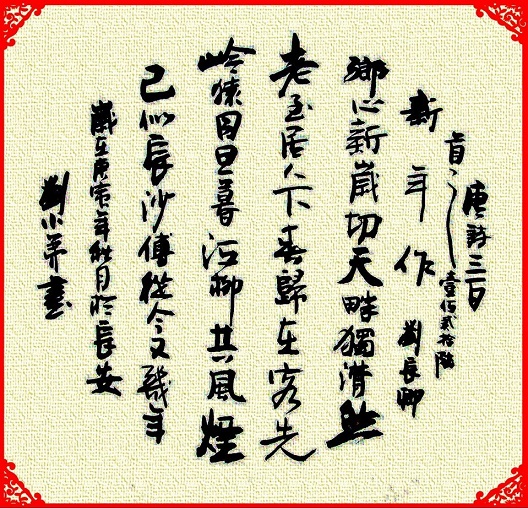 唐詩三百
首之壹佰貳拾陸
新年作 劉長卿
鄉心新歲切天畔獨潸然
老至居人下春歸在客先
岭猿同旦暮江柳共風煙
已似長沙傅從今又幾年
歲在庚寅年秋月於長安
劉小平書